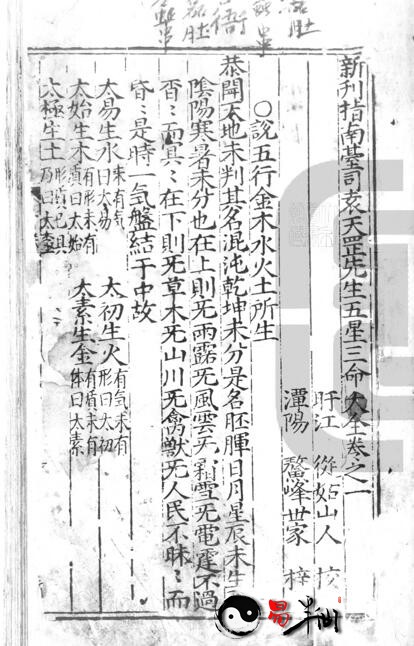 新刊指南臺司袁天罡先生五星三命大全卷之一
盱江 從姑山人 校
潭陽 鰲峰世家 梓
○說五行金木水火土所生
恭聞天地未判其名混沌乾坤未分是名胚腪日月星辰未生
陰陽寒暑未分也在上則旡雨露旡風雲旡霜雪旡雷霆不過
杳〻而冥〻在下則旡草木旡山川旡禽獸旡人民不昧〻而
昏〻是時一氣盤結于中故
太易生水 未有氣曰太易 太初生火 有氣未有形曰太初
太始生木 有形未有質曰太始 太素生金 有質未有体曰太素
太極生土 形質已具乃曰太極
胚